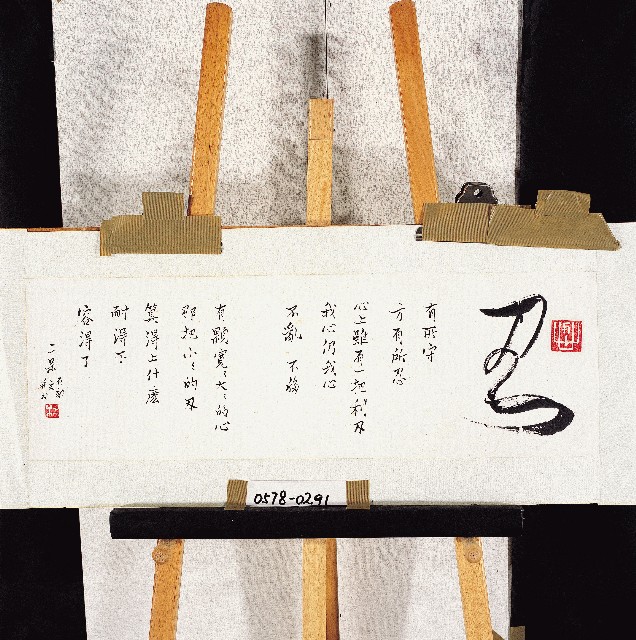 忍
有所守
方有所忍
心上雖有一把利刃
我心仍我心
不亂 不傷
有顆寬々大々的心
那把小々的刃
算得上什麼
耐得下
容得了
0578-0291